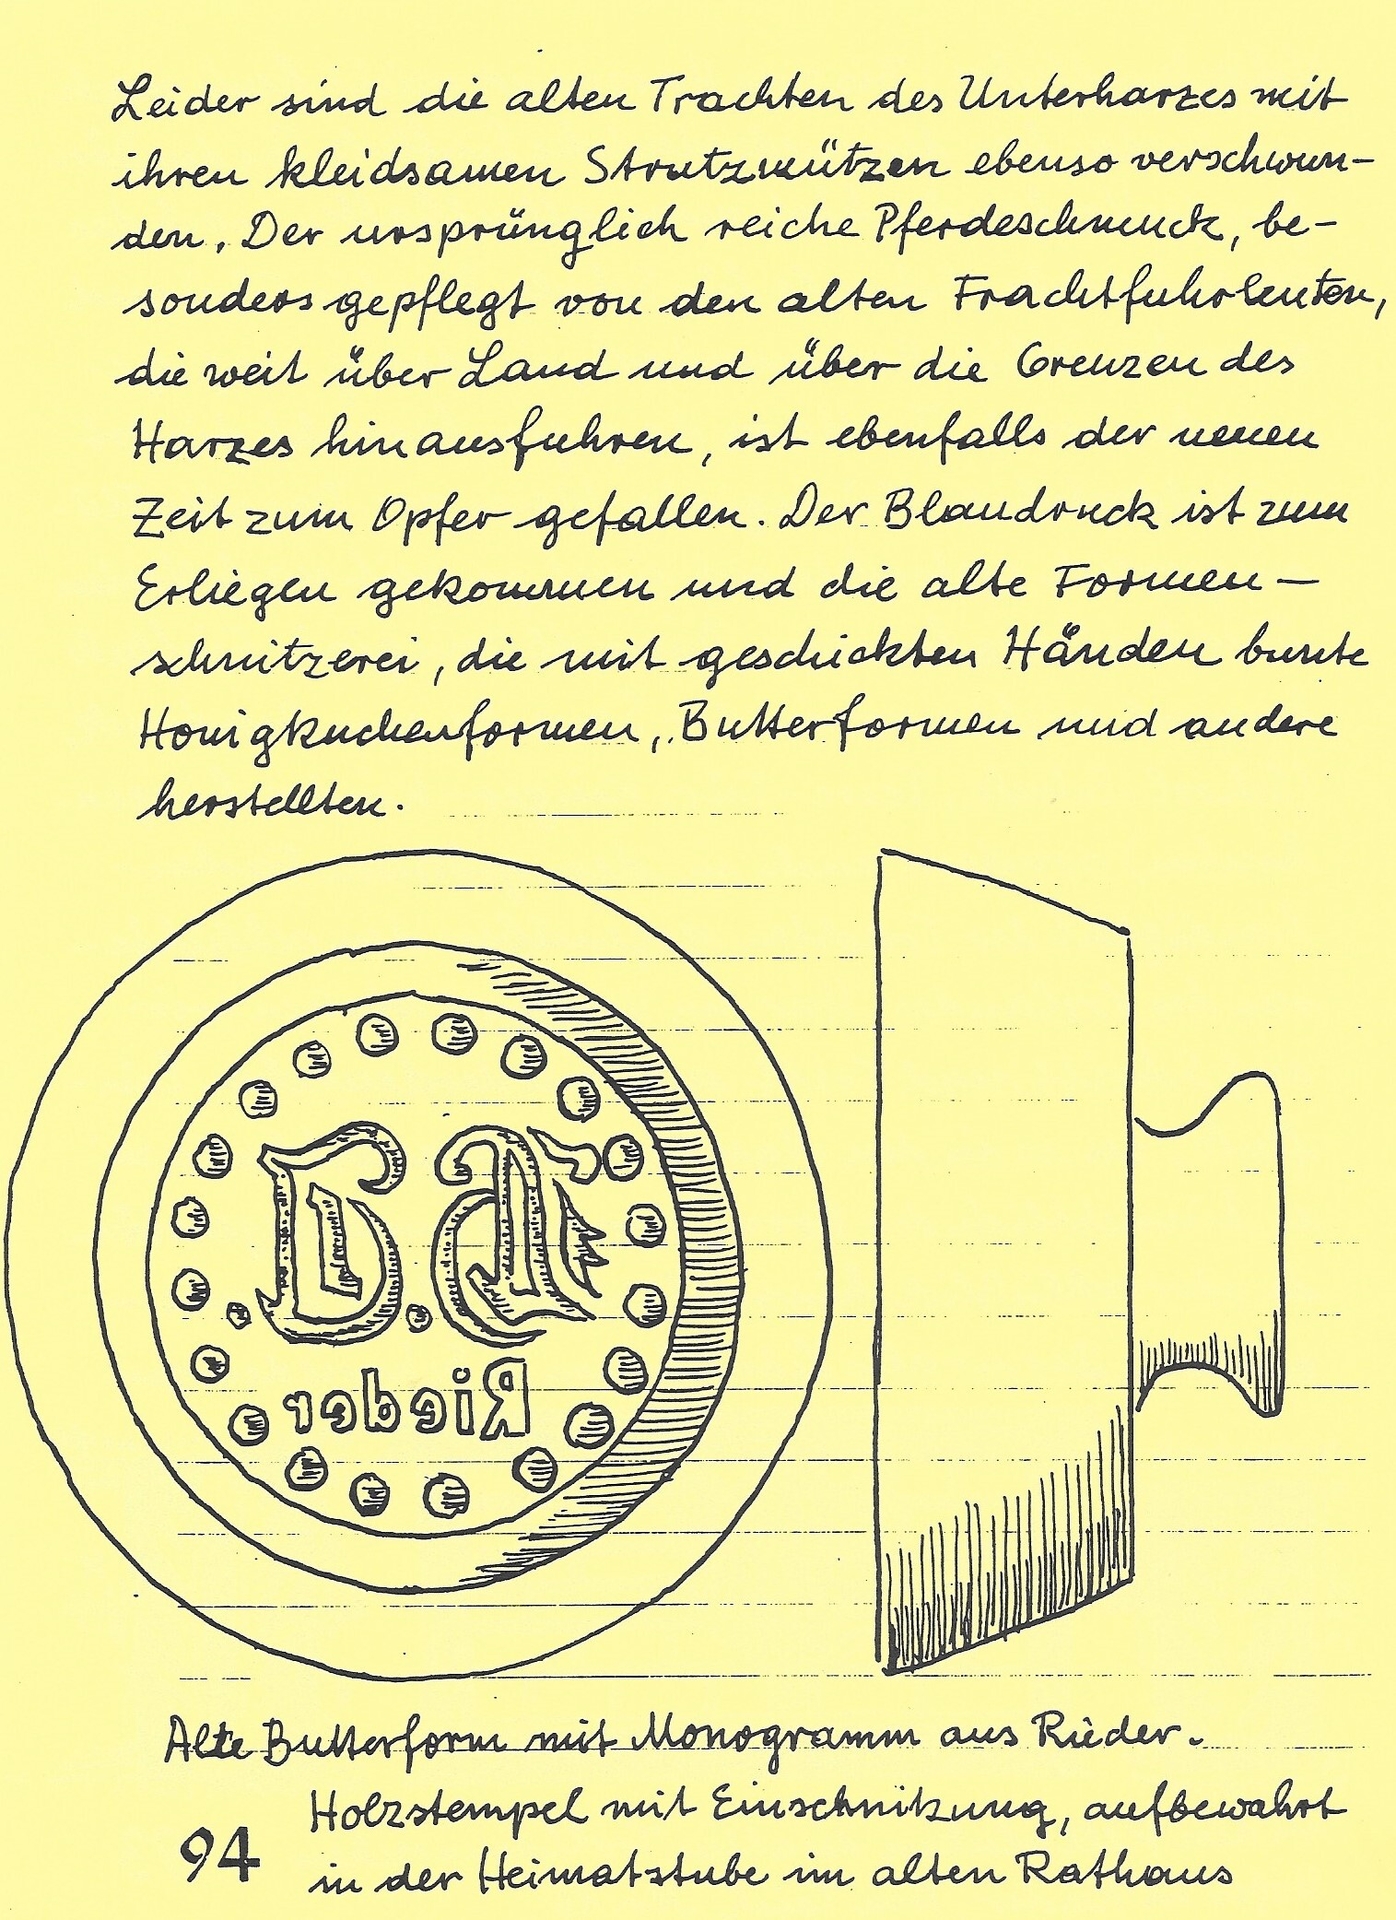 Leider sind die alten Trachten des Unterharzes mit
ihren kleidsamen Strutzmützen ebenso verschwun-
den. Der ursprünglich reiche Pferdeschmuck, be-
sonders gepflegt von den alten Frachtfuhrleuten,
die weit über Land und über die Grenzen des
Harzes hinausfuhren, ist ebenfalls der neuen
Zeit zum Opfer gefallen. Der Blaudruck ist zum
Erliegen gekommen und die alte Formen-
schnitzerei, die mit geschickten Händen bunte
Honigkuchenformen, Butterformen und andere
herstellten.
Rieder
Alte Butterform mit Monogramm aus Rieder.
Holzstempel mit Einschnitzung, aufbewahrt
94 in der Heimatstube im alten Rathaus